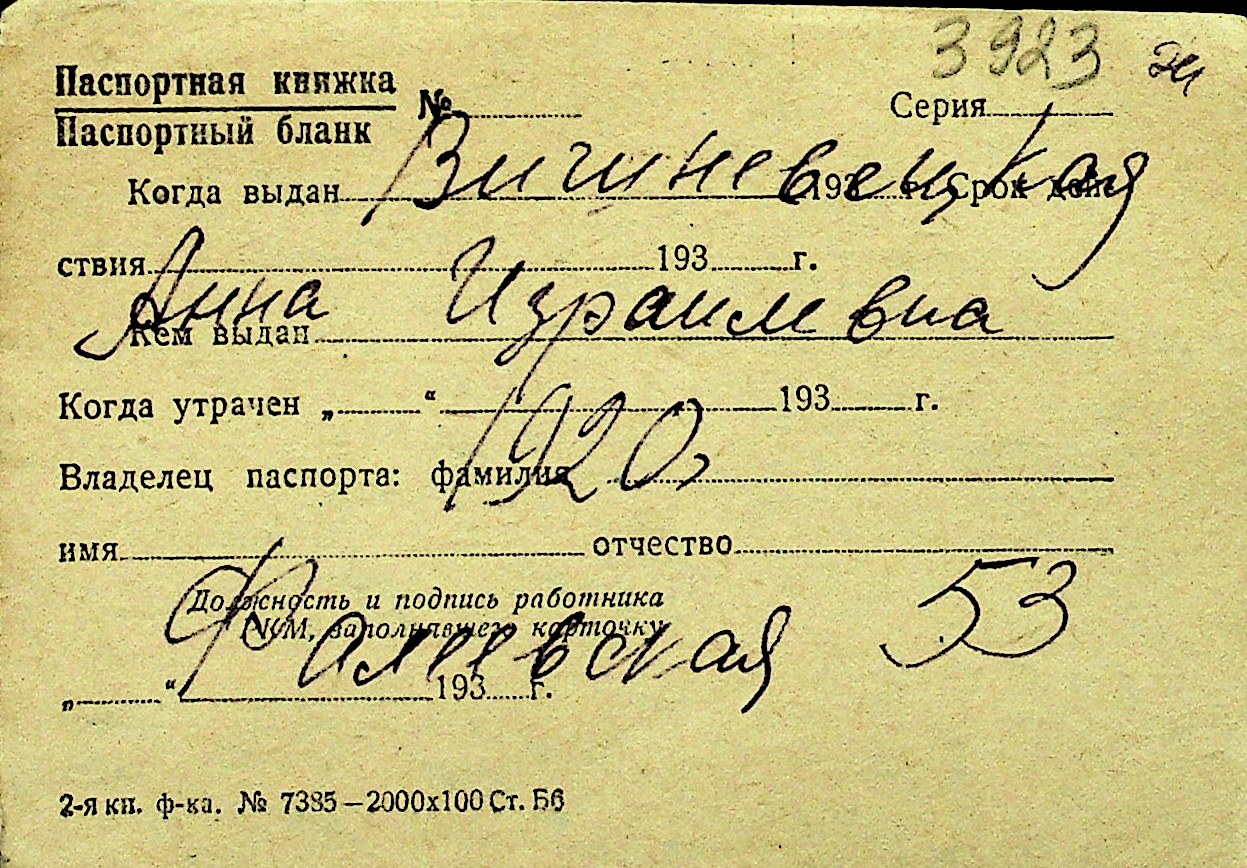 3923 эи
Паспортная книжка
Паспортный бланк
№ Серия
Вишневецкая
Когда выдан 193 г. Срок дей-
ствия 193 г.
Анна Израилевна
Кем выдан
Когда утрачен „ “ 193 г.
1920
Владелец паспорта: фамилия
имя отчество
Должность и подпись работника
РКМ, заполнявшего карточку
Фалеевская 53
„ “ 193 г.
2-я кн. ф-ка. № 7385—2000х100 Ст. Б6